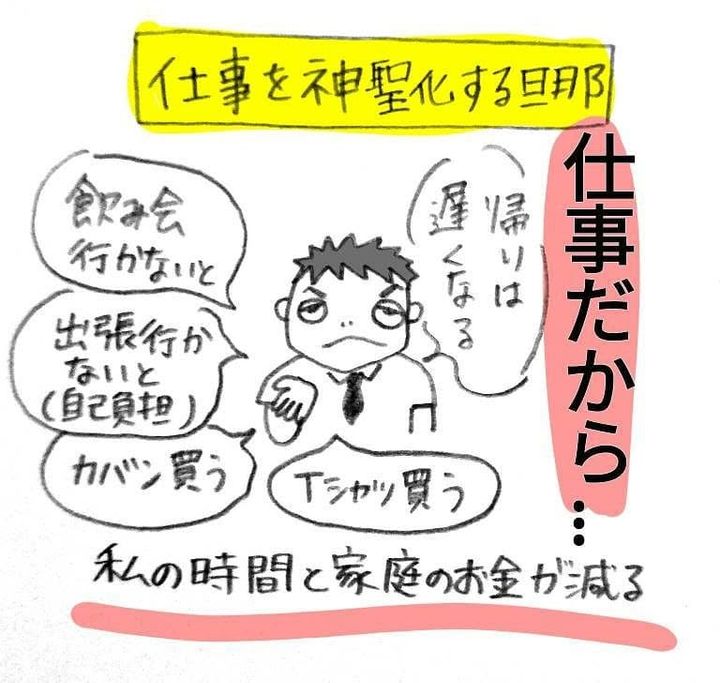 仕事を神聖化する旦那
仕事だから…
帰りは
遅くなる
飲み会
行かないと
出張行か
ないと
(自己負担)
カバン買う
Tシャツ買う
私の時間と家庭のお金が減る